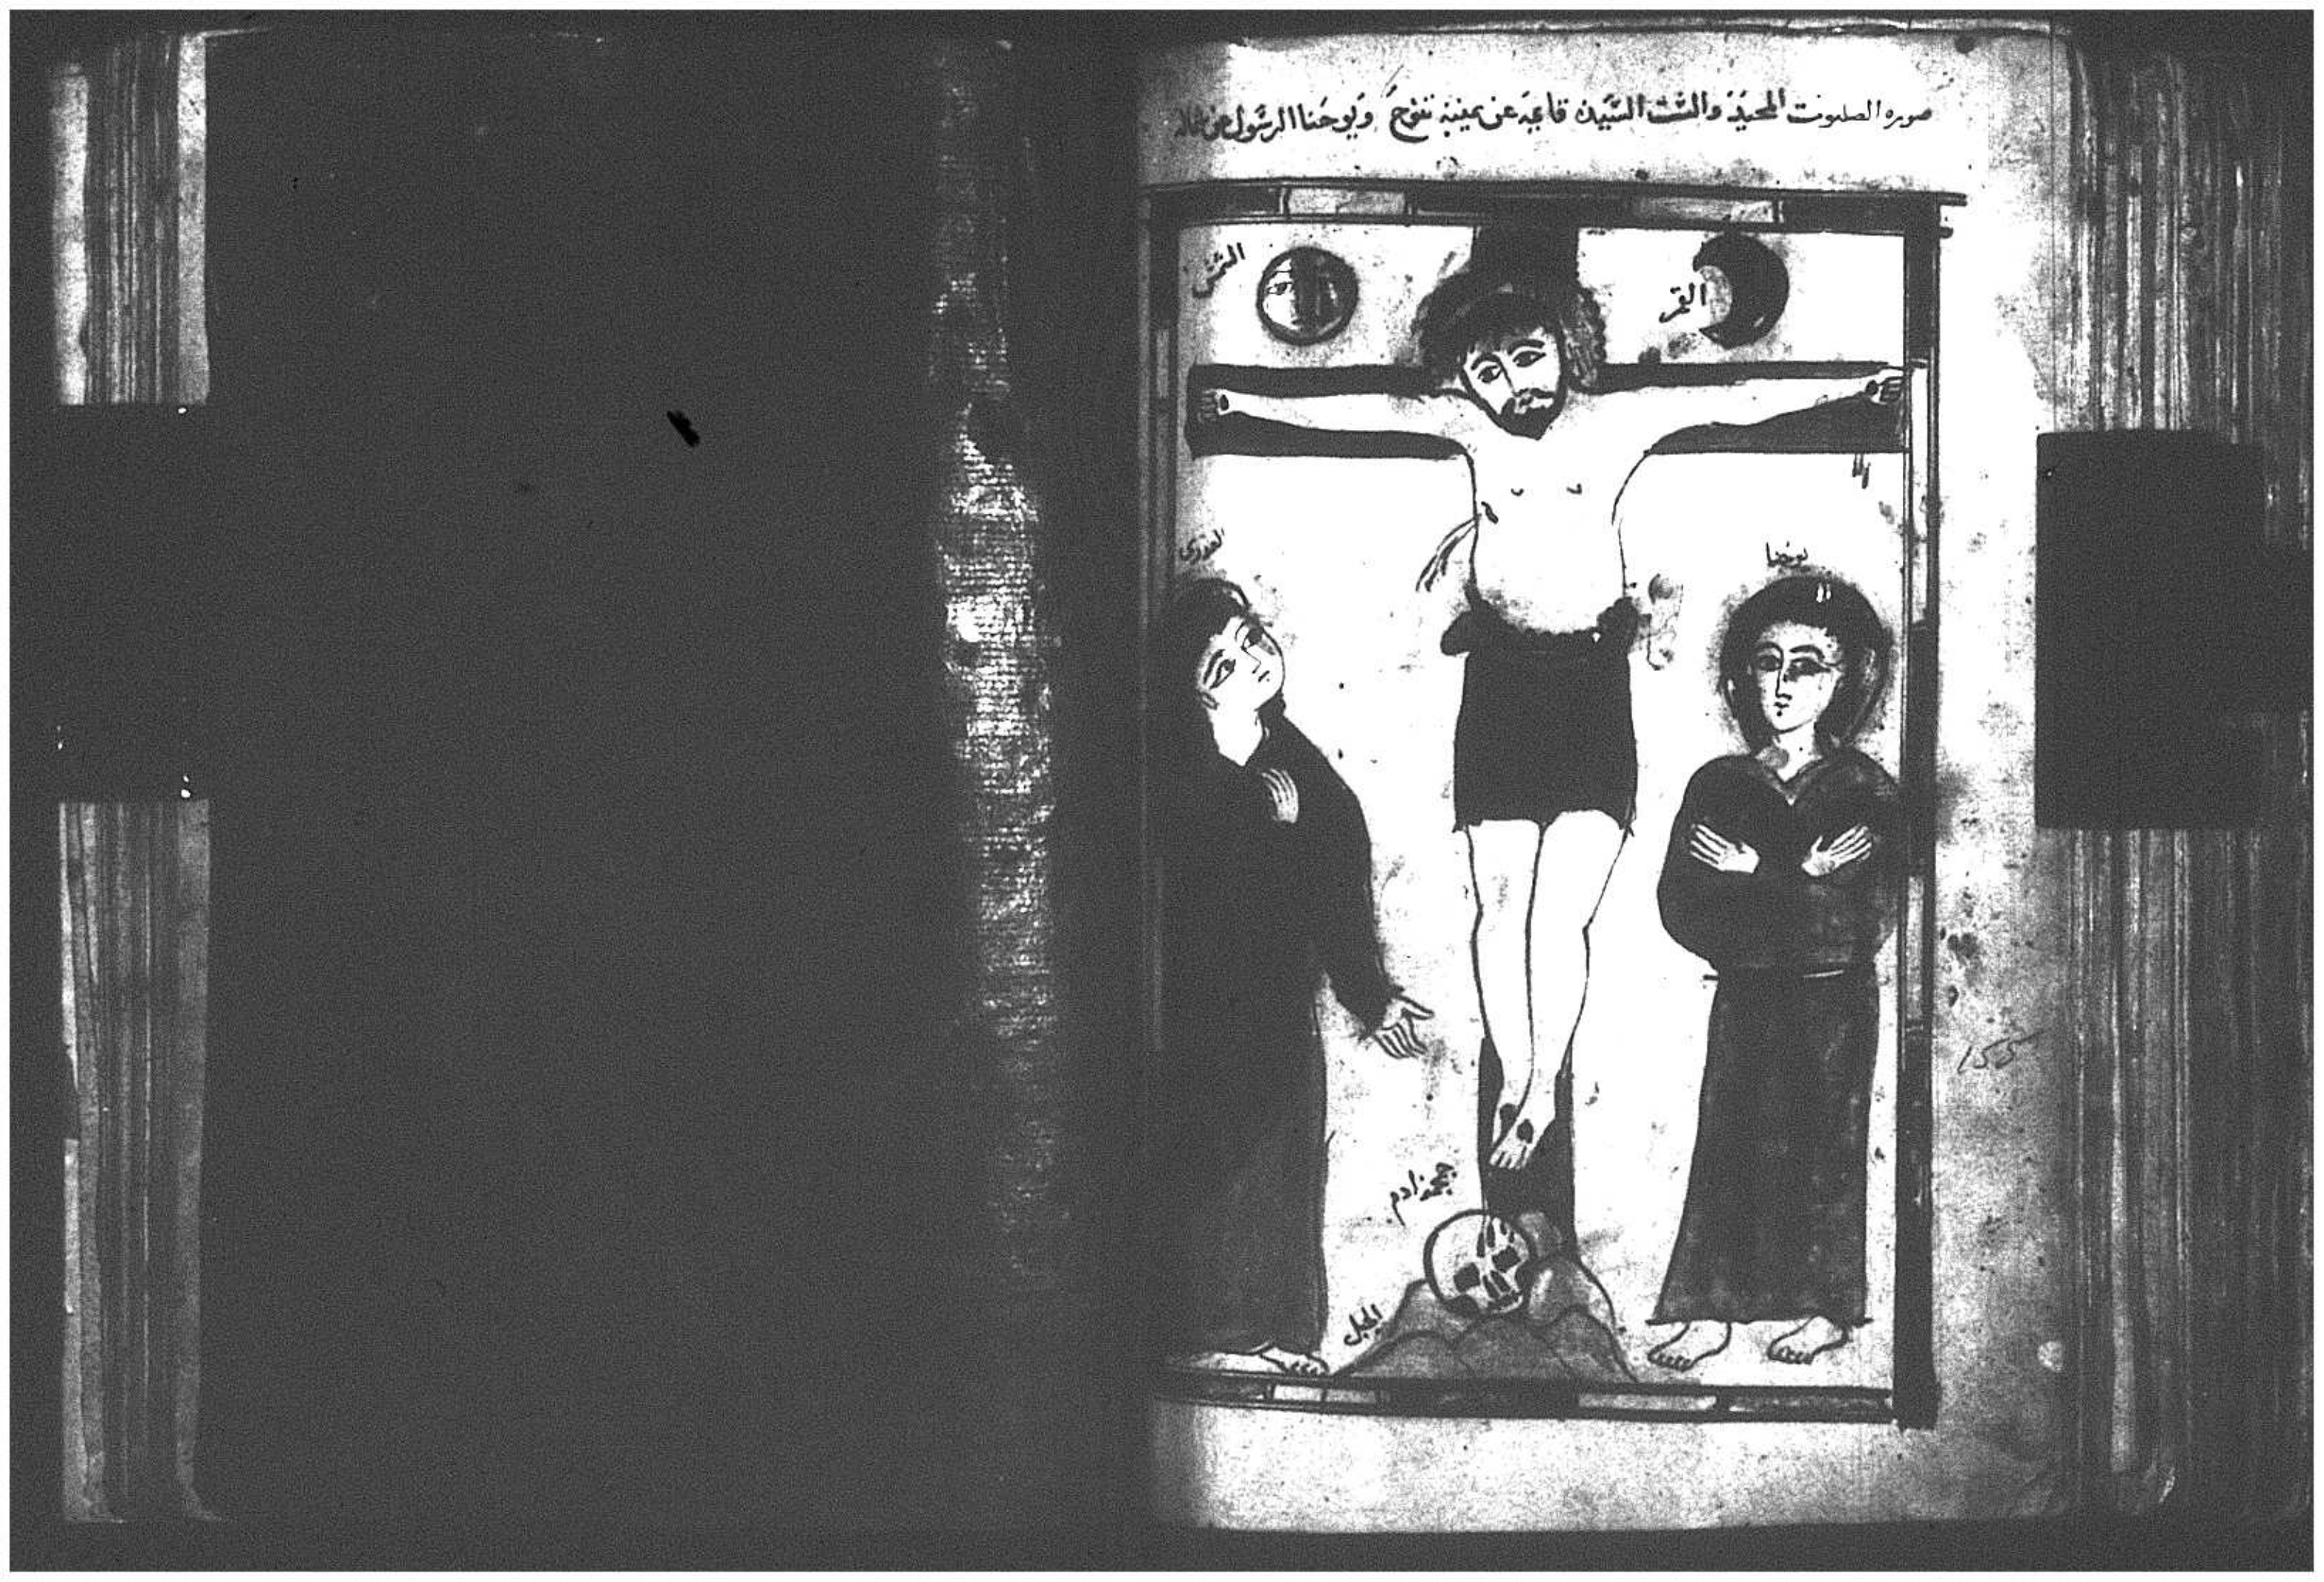 صوره الصلبوت المجيد والست السيده قايمه عن يمينه تنوح ويوحنا الرسول عن شماله
الشمس
القمر
العذرى
يوحنا
155
جمجمة ادم
الجبل